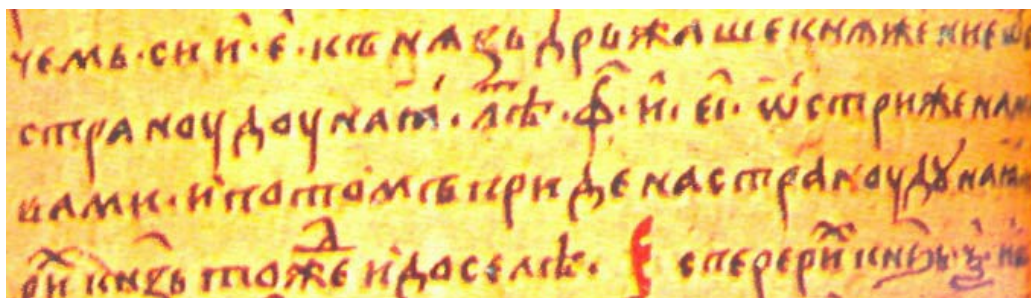 чемь· си и҃· е҃· кънѧзь дрьжаше кнѧжение
страноу доунаꙗ· лѣⷮ· ф҃· и҃· еі҃· ѡстрижена
вами· и потомъ приде на страноу дꙋнаꙗ
риⷯ кнѕь тоⷤде и доселѣ· Есперериⷯ кнѧⷥь·